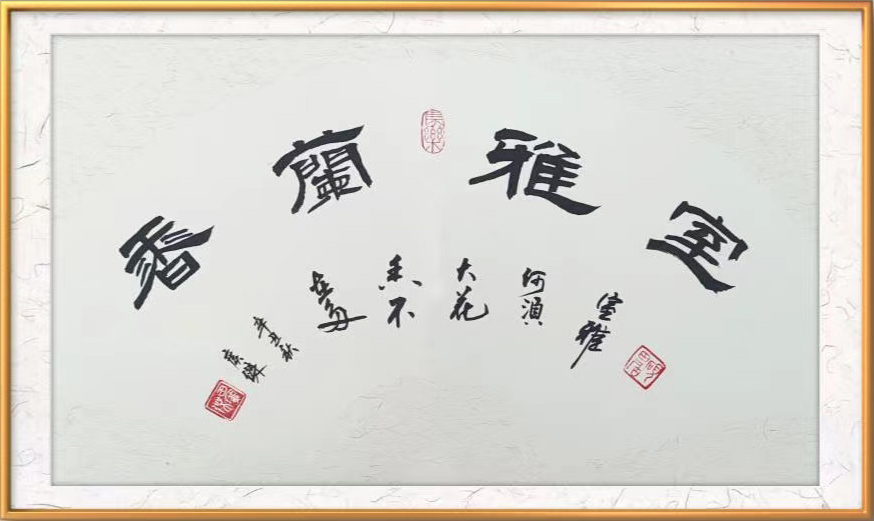 室雅蘭香
室雅
何湏
大花
香不
在多
辛丑秋